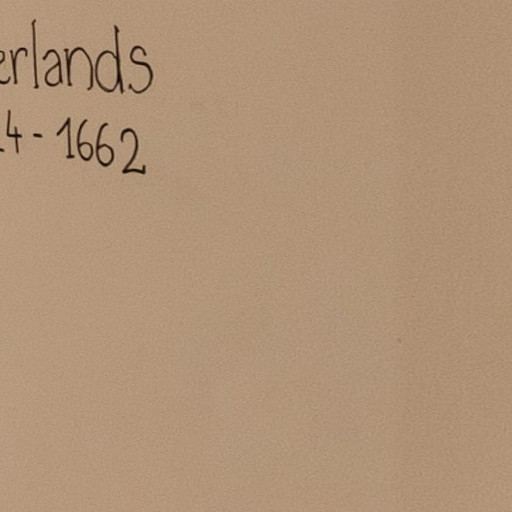 erlands
4 - 1662